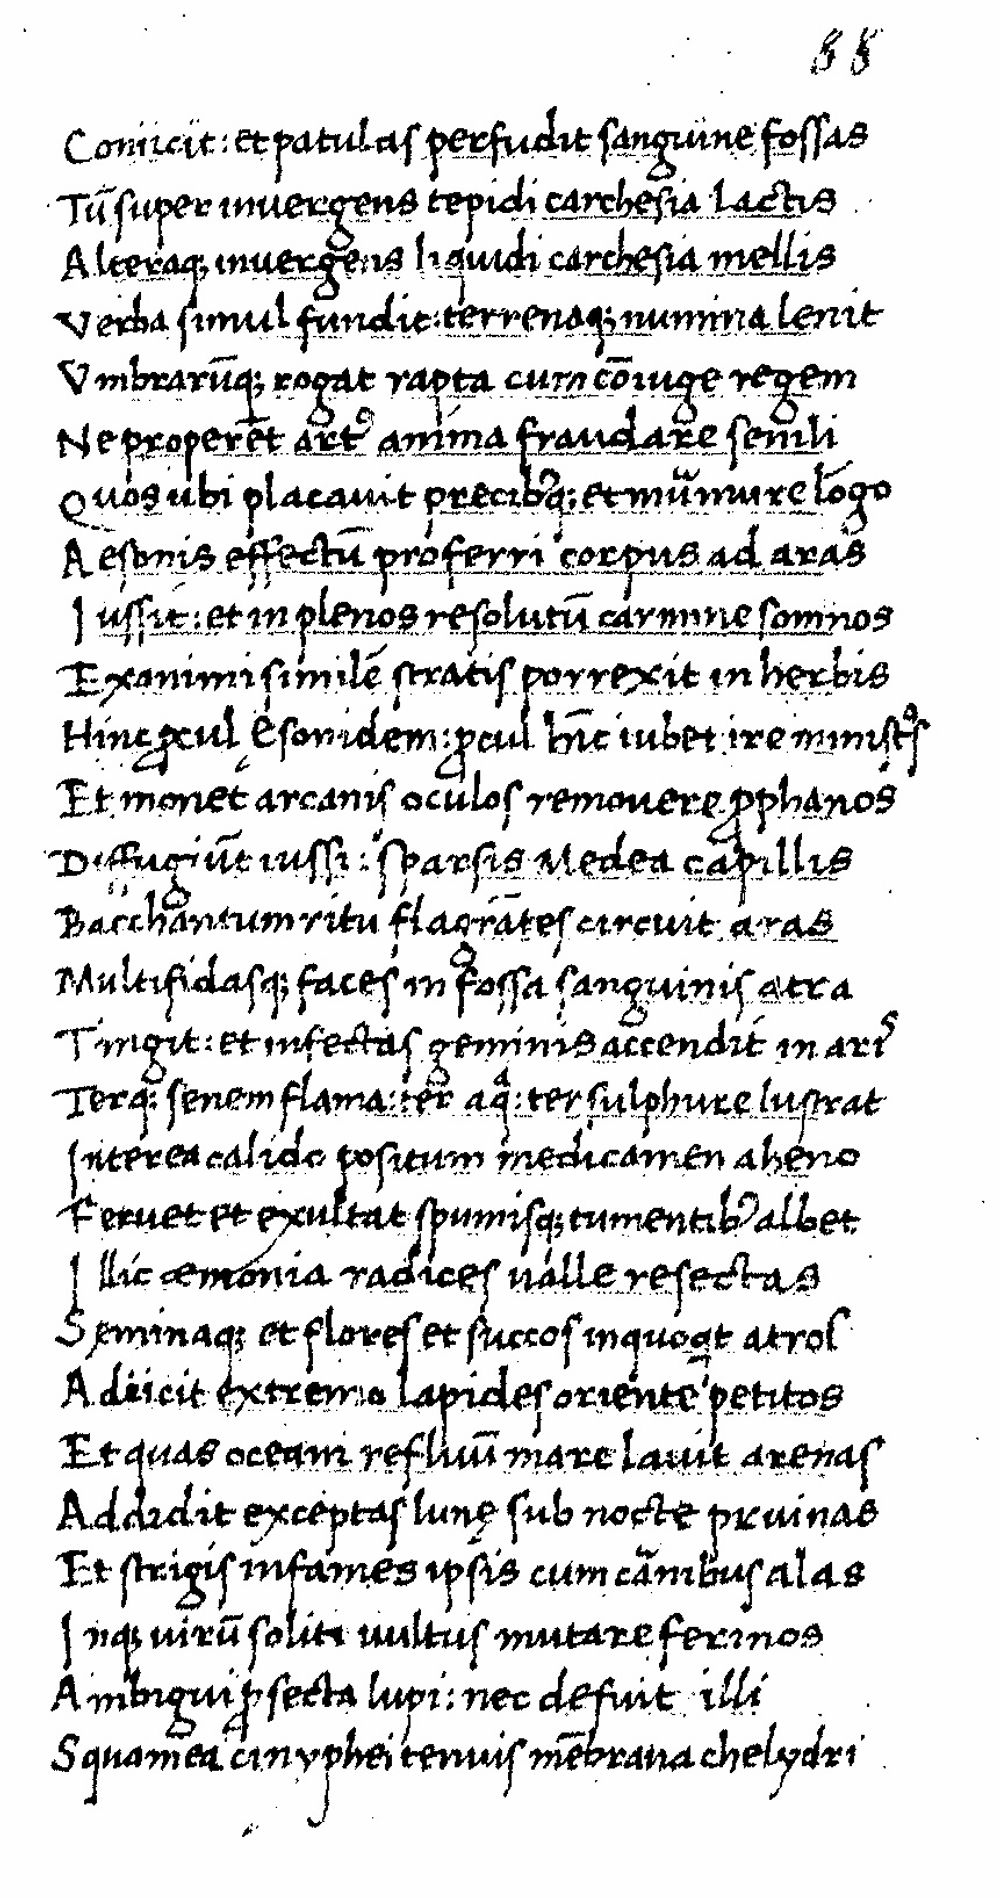 88
Coniicit: et patulas perfudit sanguine fossas
Tū super invergens tepidi carchesia lactis
Alteraq; invergens liquidi carchesia mellis
Verba simul fundit: terrenaq; numina lenit
Vmbrarūq; rogat rapta cum cōiuge regem
Ne properēt artꝰ anima fraudare senili
Quos ubi placavit precibꝰq; et murmure lōgo
Aesonis effectū proferri corpus ad aras
Iussit: et in plenos resolutū carmine somnos
Exanimi similē stratis porrexit in herbis
Hinc ꝓcul Esonidem: ꝓcul hīc iubet ire ministros
Et monet arcanis oculos removere ꝓphanos
Diffugiūt iussi: sparsis Medea capillis
Bacchantum ritu flagrātes circuit aras
Multifidasq; faces in fossa sanguinis atra
Tingit: et infectas geminis accendit in aris
Terq; senem flama: ter aqᵃ: ter sulphure lustrat
Interea calido positum medicamen aheno
Fervet et exultat spumisq; tumentibꝰ albet
Illic æmonia radices valle resectas
Seminaq; et flores et succos inquoqt atros
Adiicit extremo lapides oriente petitos
Et quas oceani refluū mare lavit arenas
Addidit exceptas lunę sub nocte pruinas
Et strigis infames ipsis cum carnibus alas
Inq; virū soliti vultus mutare ferinos
Ambigui ꝓsecta lupi: nec defuit illi
Squamea cinyphei tenuis mēbrana chelydri